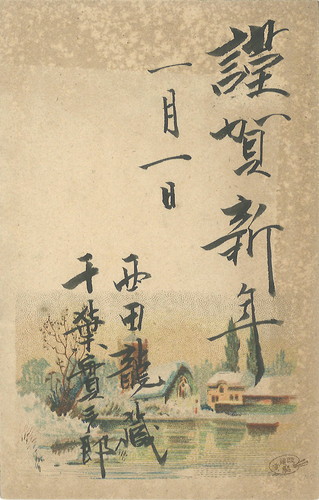 謹賀新年
一月一日
西田龍蔵
千葉寶三郎